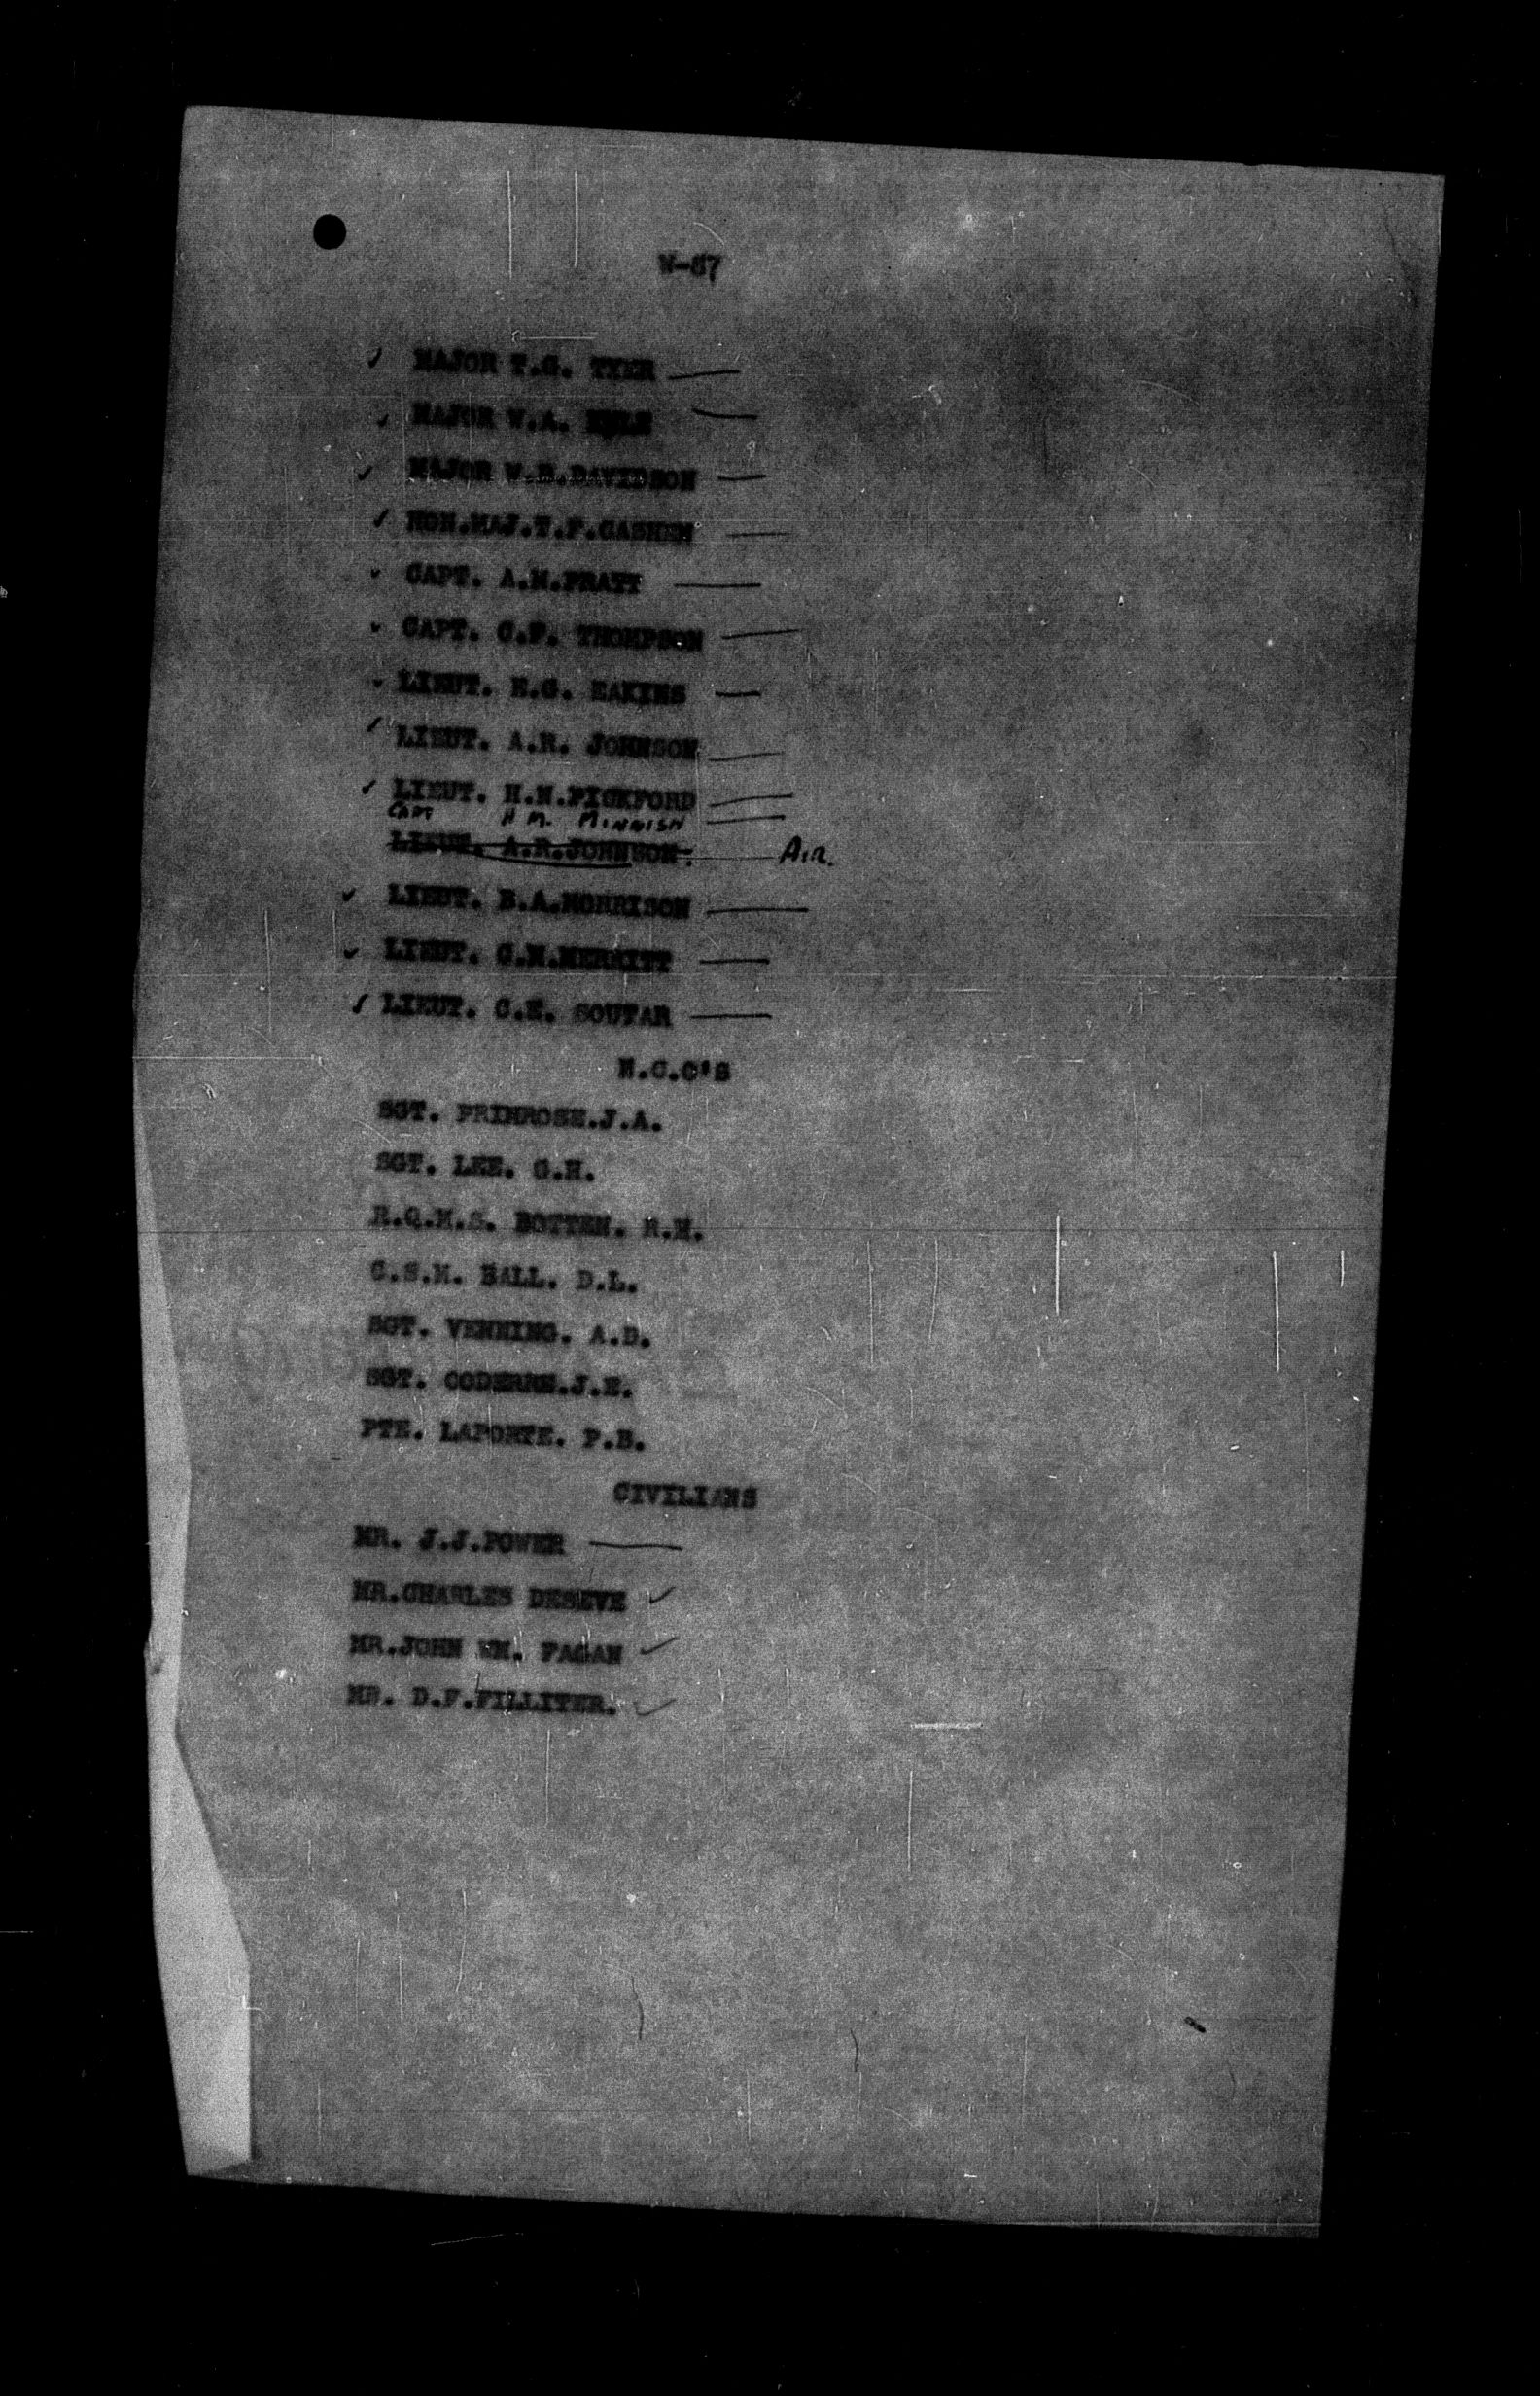 W-57
✓ MAJOR T.G. TYER —
✓ MAJOR W.A. —
✓ MAJOR W.B.DAVIDSON —
✓ HON.MAJ.T.F.CASHEN —
✓ CAPT. A.M.PRATT —
✓ CAPT. C.F. THOMPSON —
✓ LIEUT. H.G. EAKINS —
✓ LIEUT. A.R. JOHNSON —
✓ LIEUT. H.N.PICKFORD —
CAPT H.M. MINNISH —
LIEUT. A.R.JOHNSON. — Air.
✓ LIEUT. B.A.MORRISON —
✓ LIEUT. G.M.MERRITT —
✓ LIEUT. C.E. SOUTAR —
N.C.O'S
SGT. PRIMROSE.J.A.
SGT. LEE. G.H.
R.Q.M.S. BOTTEN. R.H.
C.S.M. BALL. D.L.
SGT. VENNING. A.D.
SGT. CODERRE.J.E.
PTE. LAPORTE. P.B.
CIVILIANS
MR. J.J.POWER —
MR.CHARLES DESEVE ✓
MR.JOHN WM. FAGAN ✓
MR. D.F.FILLITER. ✓